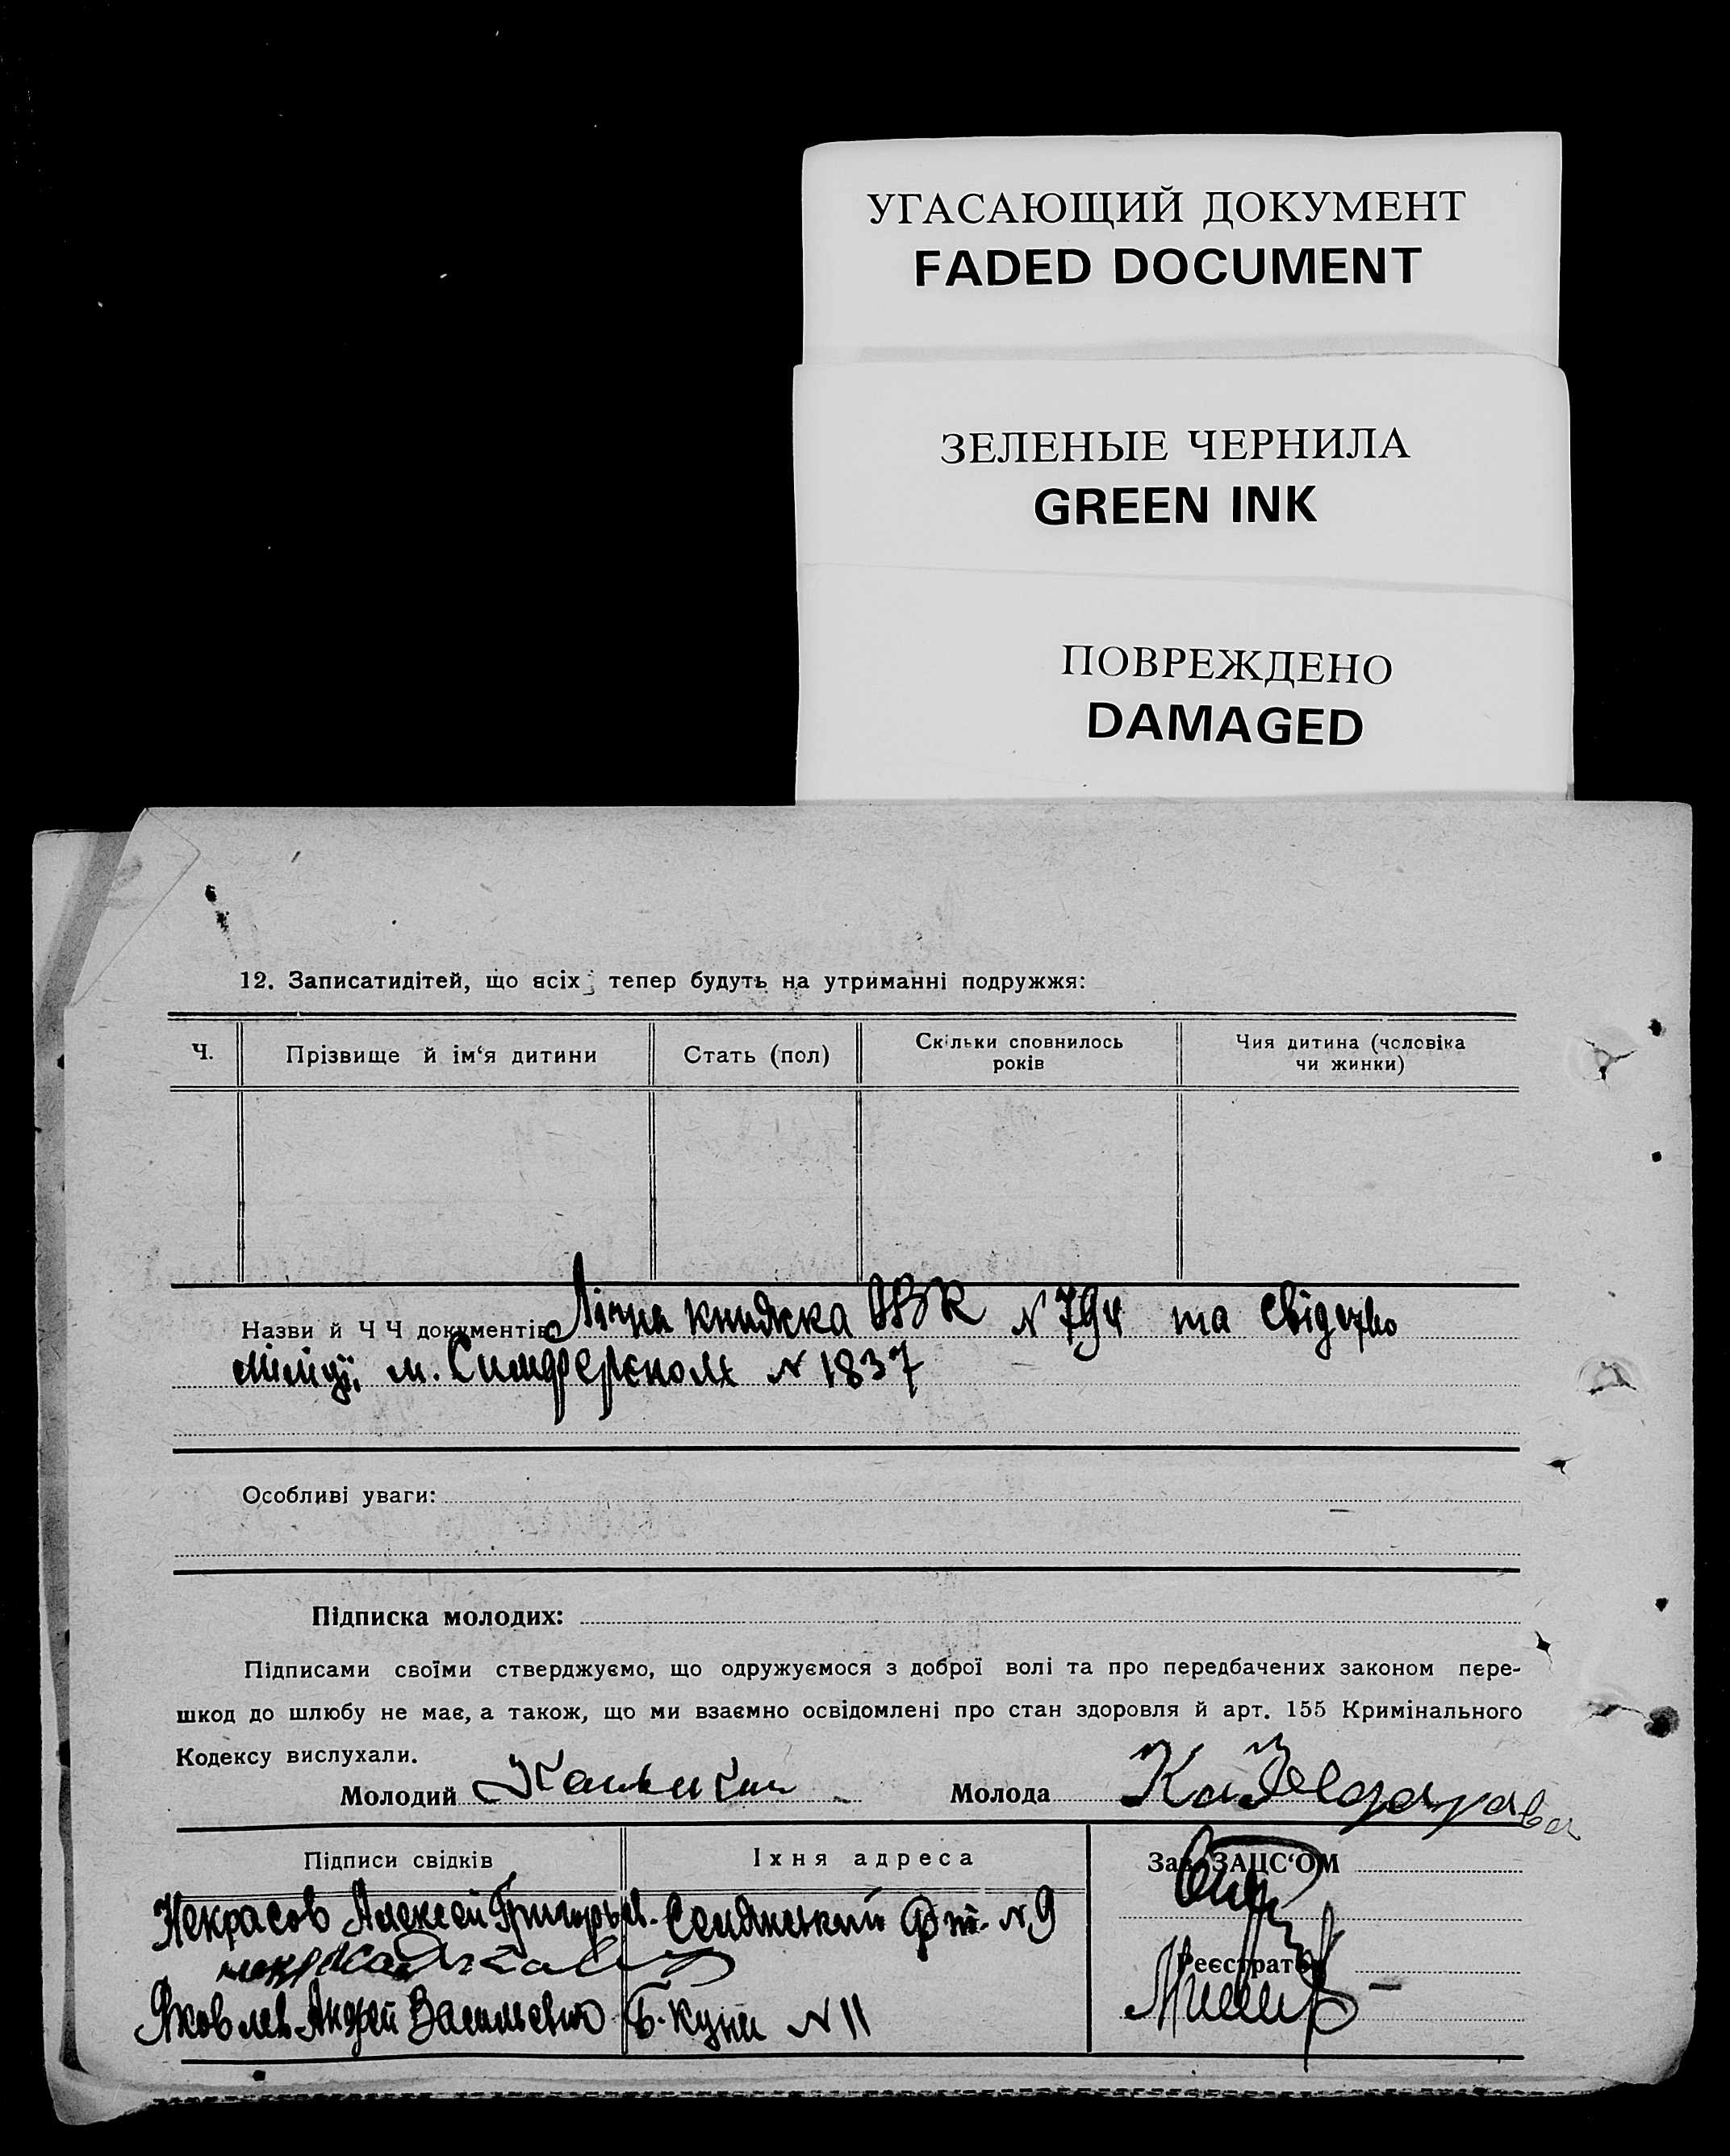 УГАСАЮЩИЙ ДОКУМЕНТ
FADED DOCUMENT
ЗЕЛЕНЫЕ ЧЕРНИЛА
GREEN INK
ПОВРЕЖДЕНО
DAMAGED
12. Записатидітей, що всіх тепер будуть на утриманні подружжя:
Ч.
Прізвище й ім‘я дитини
Стать (пол)
Скільки сповнилось
років
Чия дитина (чоловіка
чи жинки)
Назви й Ч Ч документів Лічна книжка № та свідоцтво
міліції м. Симферополя № 1837
Особливі уваги:
Підписка молодих:
Підписами своїми стверджуємо, що одружуємося з доброї волі та про передбачених законом пере-
шкод до шлюбу не має, а також, що ми взаємно освідомлені про стан здоровля й арт. 155 Кримінального
Кодексу вислухали.
Молодий
Молода
Підписи свідків
Їхня адреса
Зав. ЗАЦС‘ОМ
Некрасов Алексей Григорьев.
№ 9
Реєстратор
Яковлев Андрей Васильевич
Б. Куна № 11